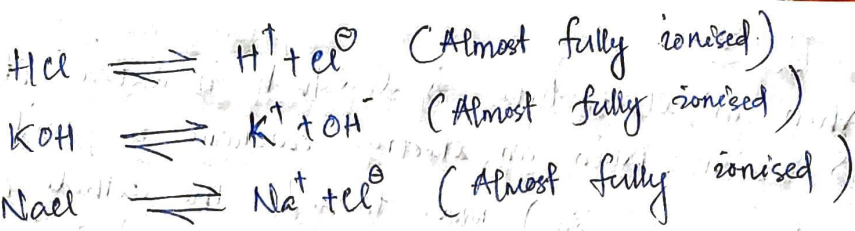 HCl ⇌ H⁺ + Cl⊖ (Almost fully ionised)
KOH ⇌ K⁺ + OH⁻ (Almost fully ionised)
NaCl ⇌ Na⁺ + Cl⊖ (Almost fully ionised)